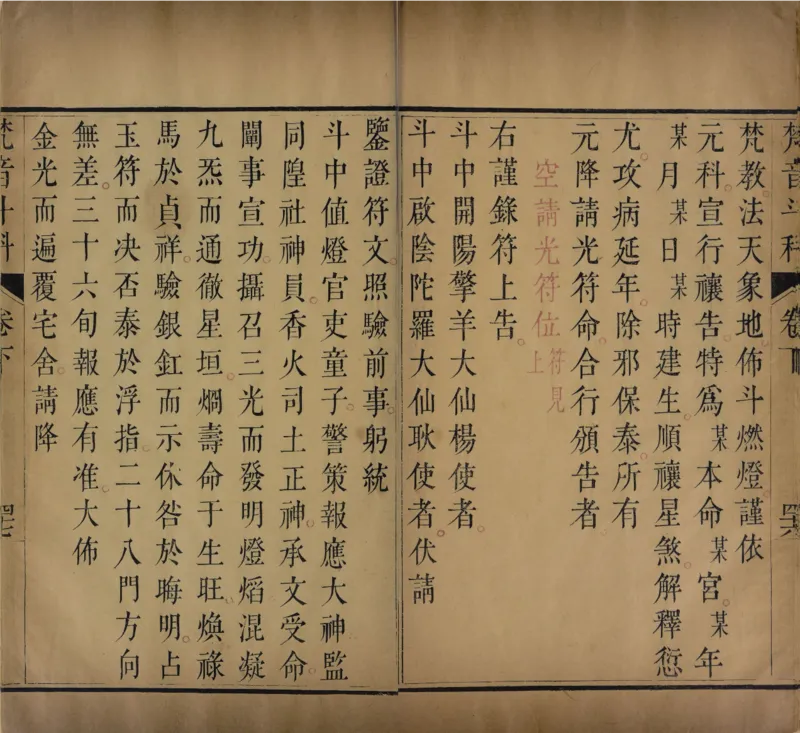 梵音斗科 卷下 四六
梵教。法天象地。佈斗燃燈。謹依
元科。宣行禳告。特為某本命某宮。某年
某月某日某時建生。順禳星煞。解釋愆
尤。攻病延年。除邪保泰。所有
元降請光符命。合行頒告者
空請光符位上符見
右謹錄符上告。
斗中開陽擎羊大仙楊使者。
斗中啟陰陀羅大仙耿使者。伏請
鑒證符文。照驗前事。躬統
斗中值燈官吏童子。警策報應大神監
同隍社神員。香火司土正神。承文受命。
闡事宣功。攝召三光而發明燈熖。混凝
九炁而通徹星垣。烱壽命于生旺。煥祿
馬於貞祥。驗銀釭而示休咎於晦明。占
玉符而决否泰於浮指。二十八門方向
無差。三十六旬報應有准。大佈
金光而遍覆宅舍。請降
梵音斗科 卷下